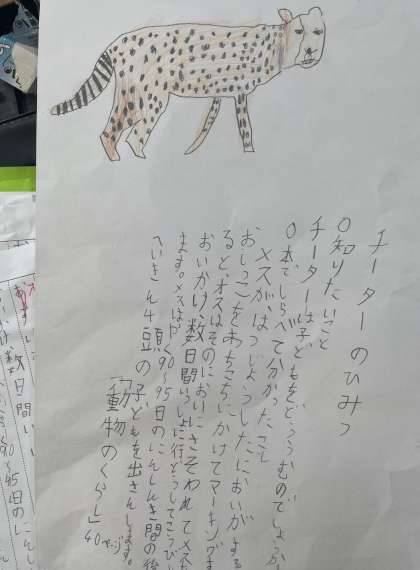 チーターのひみつ
○知りたいこと
チーターは子どもをどううむのでしょうか
○本でしらべて分かったこと
メスが、はつじょうしたにおいがする
おしっこをあちこちにかけてマーキングす
ると、オスはそのにおいにさそわれてメスを
おいかけ、数日間いっしょに行どうしてこうび
ます。メスはやく90〜95日のにんしんき間の後
へいきん4頭の子どもを出さんします。
「動物のくらし」40ページ
数日間い
90〜95日の